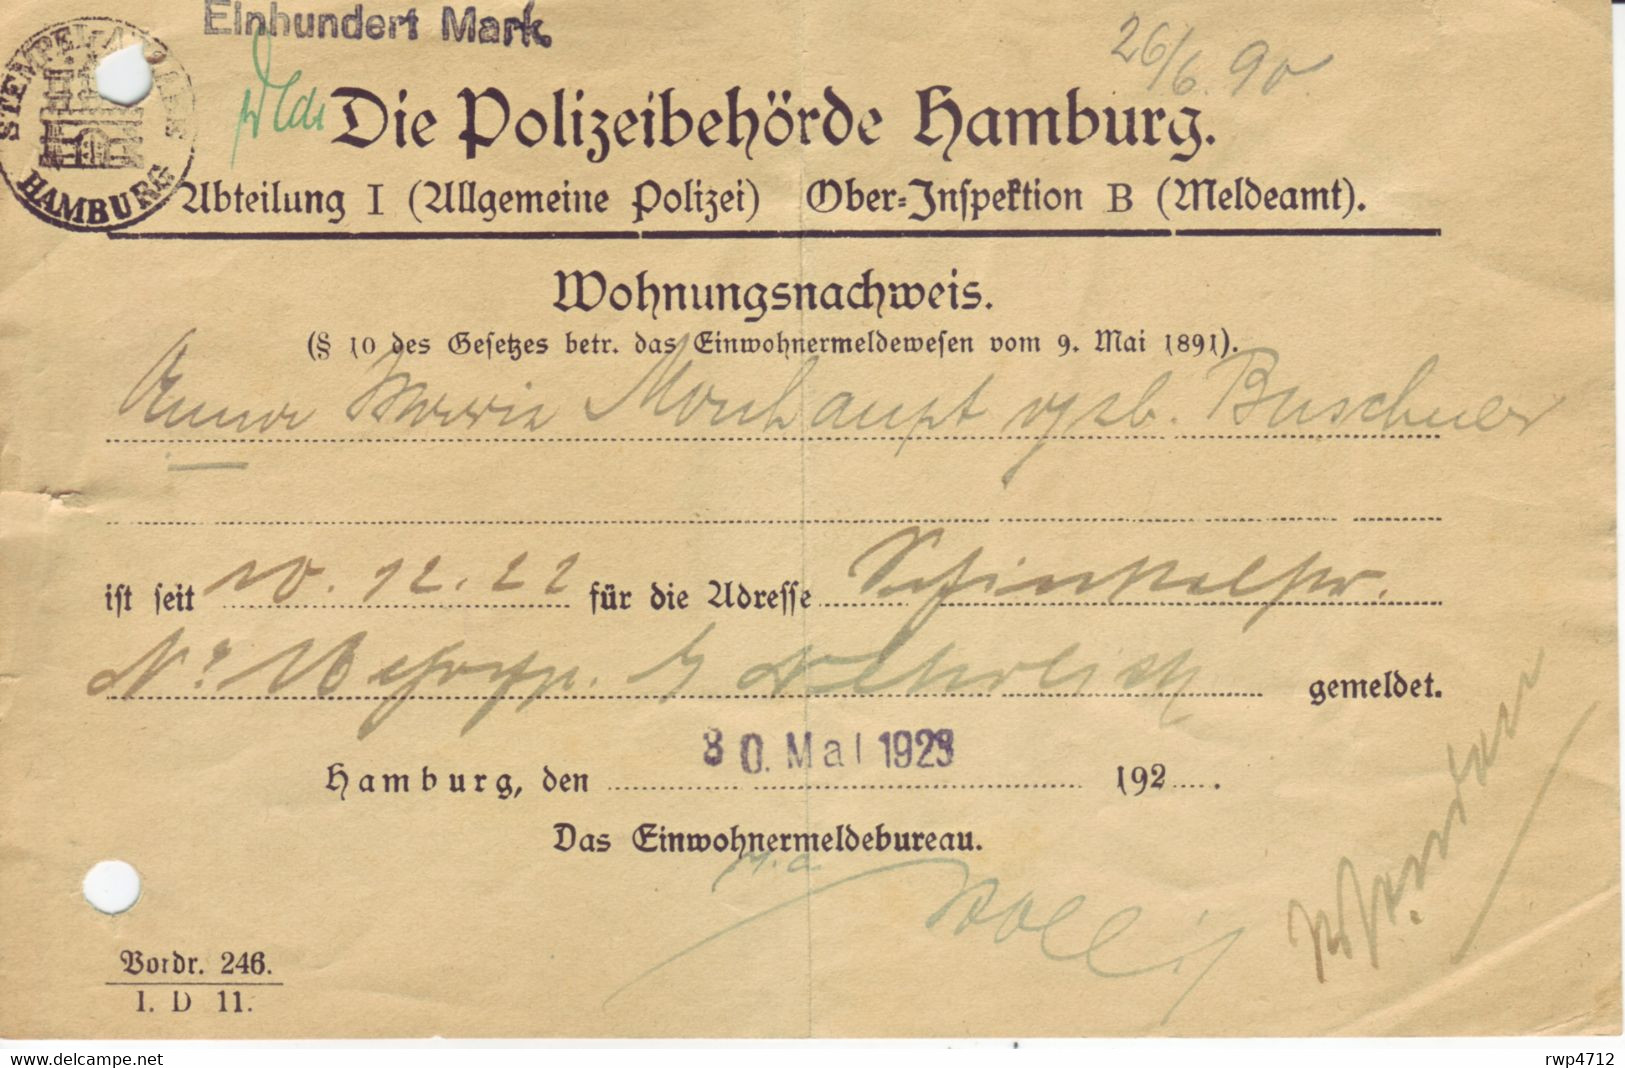 Einhundert Mark.
STEMPELMARKE HAMBURG
26/6. 90.
Die Polizeibehörde Hamburg.
Abteilung I (Allgemeine Polizei) Ober-Inspektion B (Meldeamt).
Wohnungsnachweis.
(§ 10 des Gesetzes betr. das Einwohnermeldewesen vom 9. Mai 1891).
Anna Maria Monhaupt geb. Buschner
ist seit 10.12.22 für die Adresse Schinkelstr.
No
gemeldet.
Hamburg, den 30. Mai 1923 192 .
Das Einwohnermeldebureau.
Vordr. 246.
I. D 11.
www.delcampe.net
rwp4712